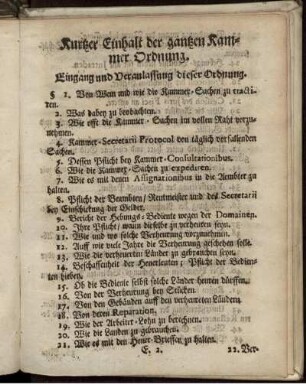 Kurtzer Einhalt der gantzen Kam-
mer Ordnung.
Eingang und Veranlassung dieser Ordnung.
§ 1. Von Wem und wie die Kammer-Sachen zu tracti-
ren.
2. Was dabey zu beobachten.
3. Wie offt die Kammer-Sachen im vollen Raht vorzu-
nehmen.
4. Kammer-Secretarii Protocol von täglich vorfallenden
Sachen.
5. Dessen Pflicht bey Kammer-Consultationibus.
6. Wie die Kammer-Sachen zu expediren.
7. Wie es mit denen Assignationibus in die Aembter zu
halten.
8. Pflicht der Beambten, Rentmeister und des Secretarii
bey Einschickung der Gelder.
9. Bericht der Hebungs-Bediente wegen der Domainen.
10. Ihre Pflicht, wann dieselbe zu verheuren seyn.
11. Wie und wo solche Verheurung vorzunehmen.
12. Auff wie viele Jahre die Verheurung geschehen solle.
13. Wie die verheurten Länder zu gebrauchen seyn.
14. Beschaffenheit der Heuerleuten, Pflicht der Bedien-
ten hiebey.
15. Ob die Bediente selbst solche Länder heuren dürffen.
16. Von der Verheurung bey Stücken.
17. Von den Gebäuden auff den verheureten Ländern.
18. Von deren Reparation.
19. Wie der Arbeiter-Lohn zu berechnen.
20. Wie die Landen zu gebrauchen.
21. Wie es mit den Heuer-Brieffen zu halten.
E. 2.
22. Ver-